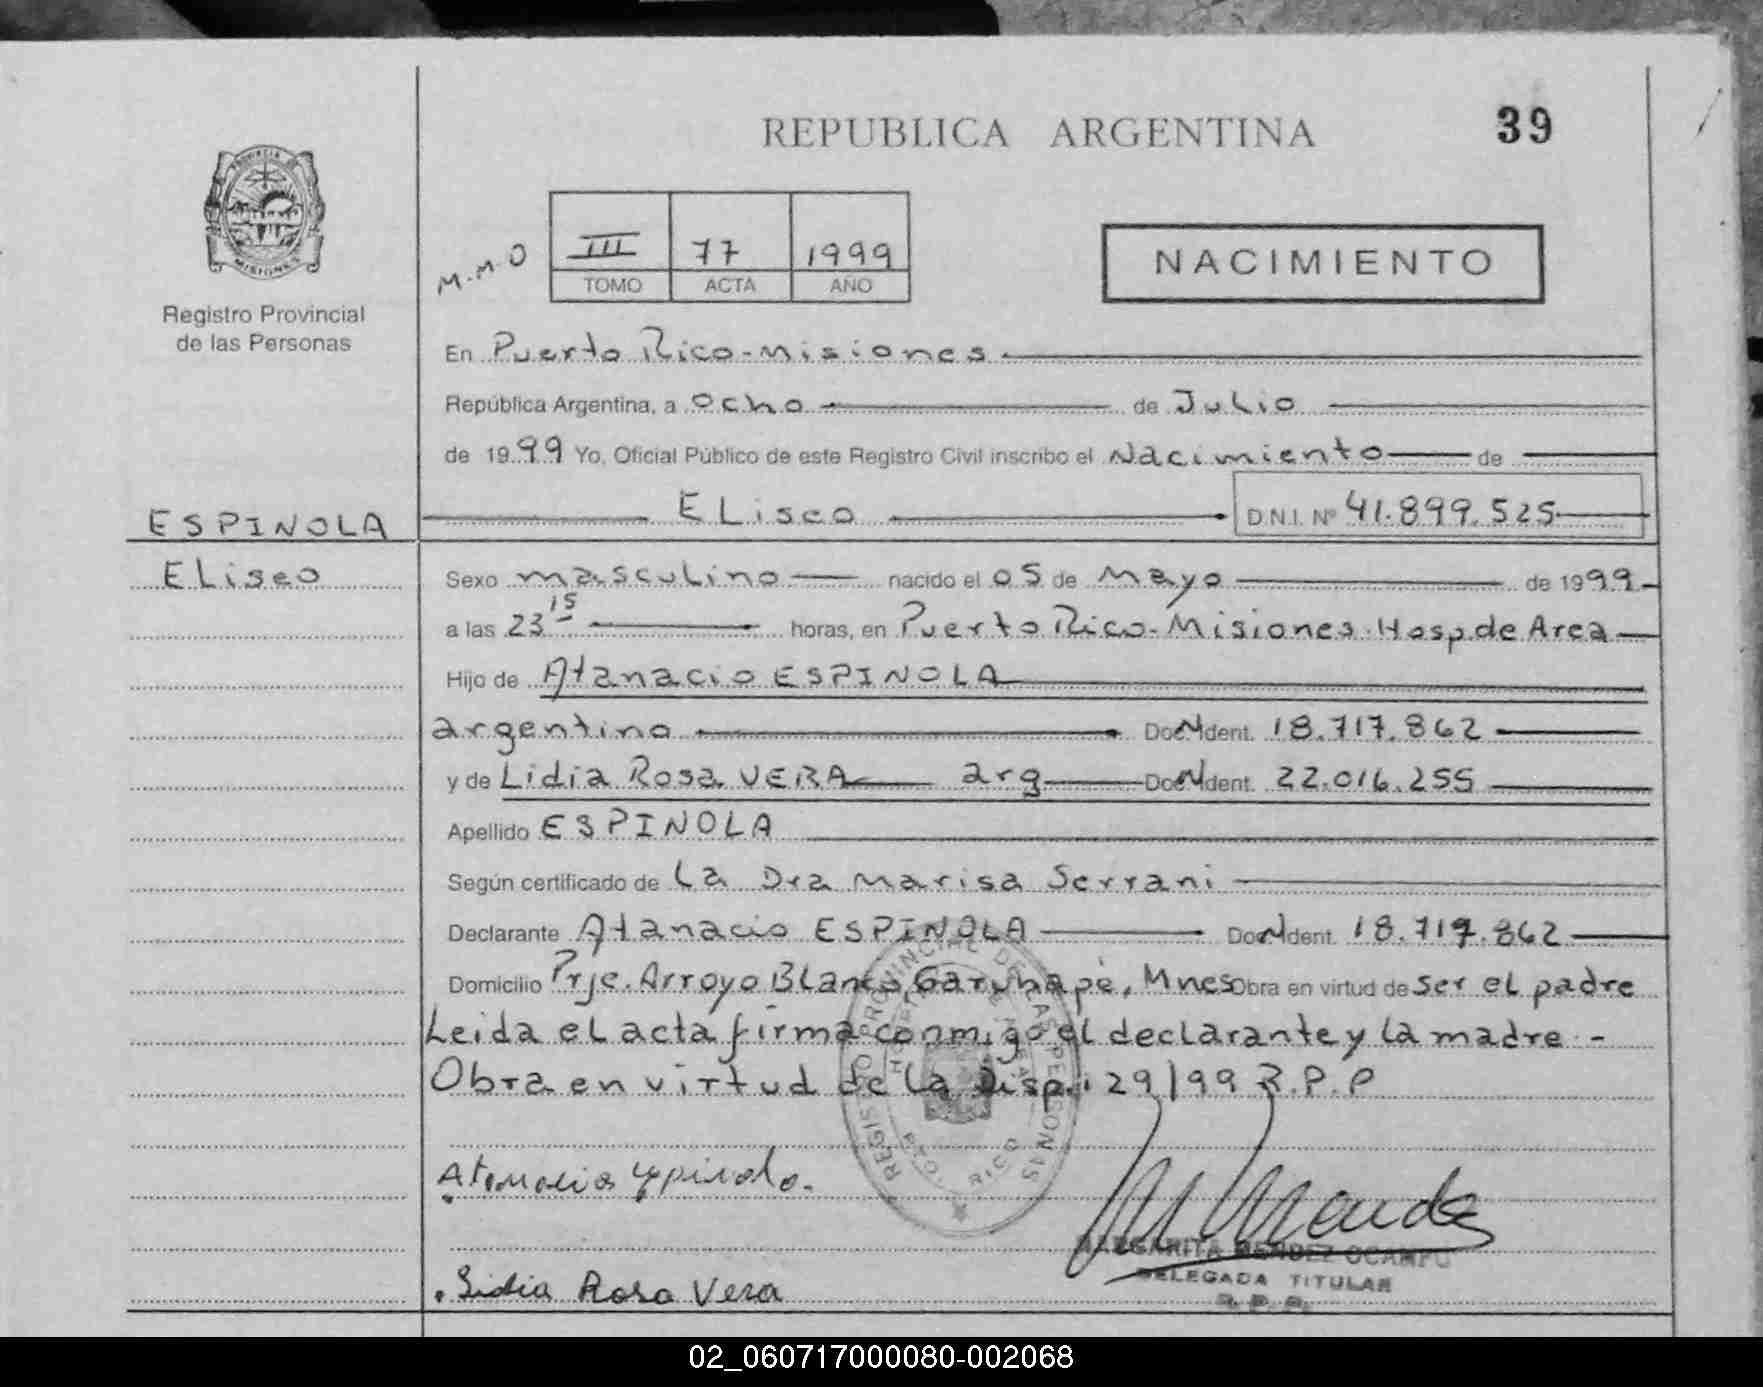 REPUBLICA ARGENTINA
39
PROVINCIA DE
MISIONES
Registro Provincial
de las Personas
M.M.O
III 77 1999
TOMO ACTA AÑO
NACIMIENTO
En Puerto Rico-Misiones
República Argentina, a ocho de Julio
de 1999 Yo, Oficial Público de este Registro Civil inscribo el Nacimiento de
ESPINOLA
ELiseo D.N.I. Nº 41.899.525
ELiseo
Sexo masculino nacido el 05 de Mayo de 1999
a las 23 15 horas, en Puerto Rico-Misiones-Hosp.de Area
Hijo de Atanacio ESPINOLA
argentino Doc Ident. 18.717.862
y de Lidia Rosa VERA arg Doc Ident. 22.016.255
Apellido ESPINOLA
Según certificado de La Dra Marisa Serrani
Declarante Atanacio ESPINOLA Doc Ident. 18.717.862
Domicilio Prje. Arroyo Blanco, Garuhapé, Mnes Obra en virtud de ser el padre
Leida el acta firma conmigo el declarante y la madre.-
Obra en virtud de la Disp: 29/99 R.P.P
REGISTRO PROVINCIAL DE LAS PERSONAS
PTO. RICO
Atanacio Espinola.
MARGARITA MENDEZ OCAMPO
DELEGADA TITULAR
R. P. P.
Lidia Rosa Vera
02_060717000080-002068